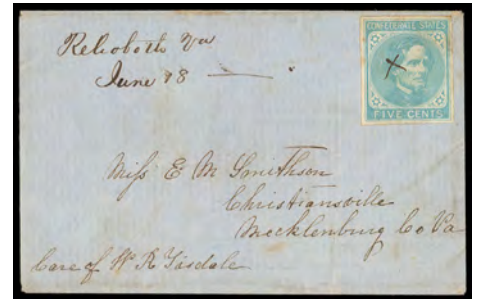 Rehoboth Va
June 18
CONFEDERATE STATES
X
FIVE CENTS
Miss E M Smithson
Christiansville
Mecklenburg Co Va
Care of W R Tisdale